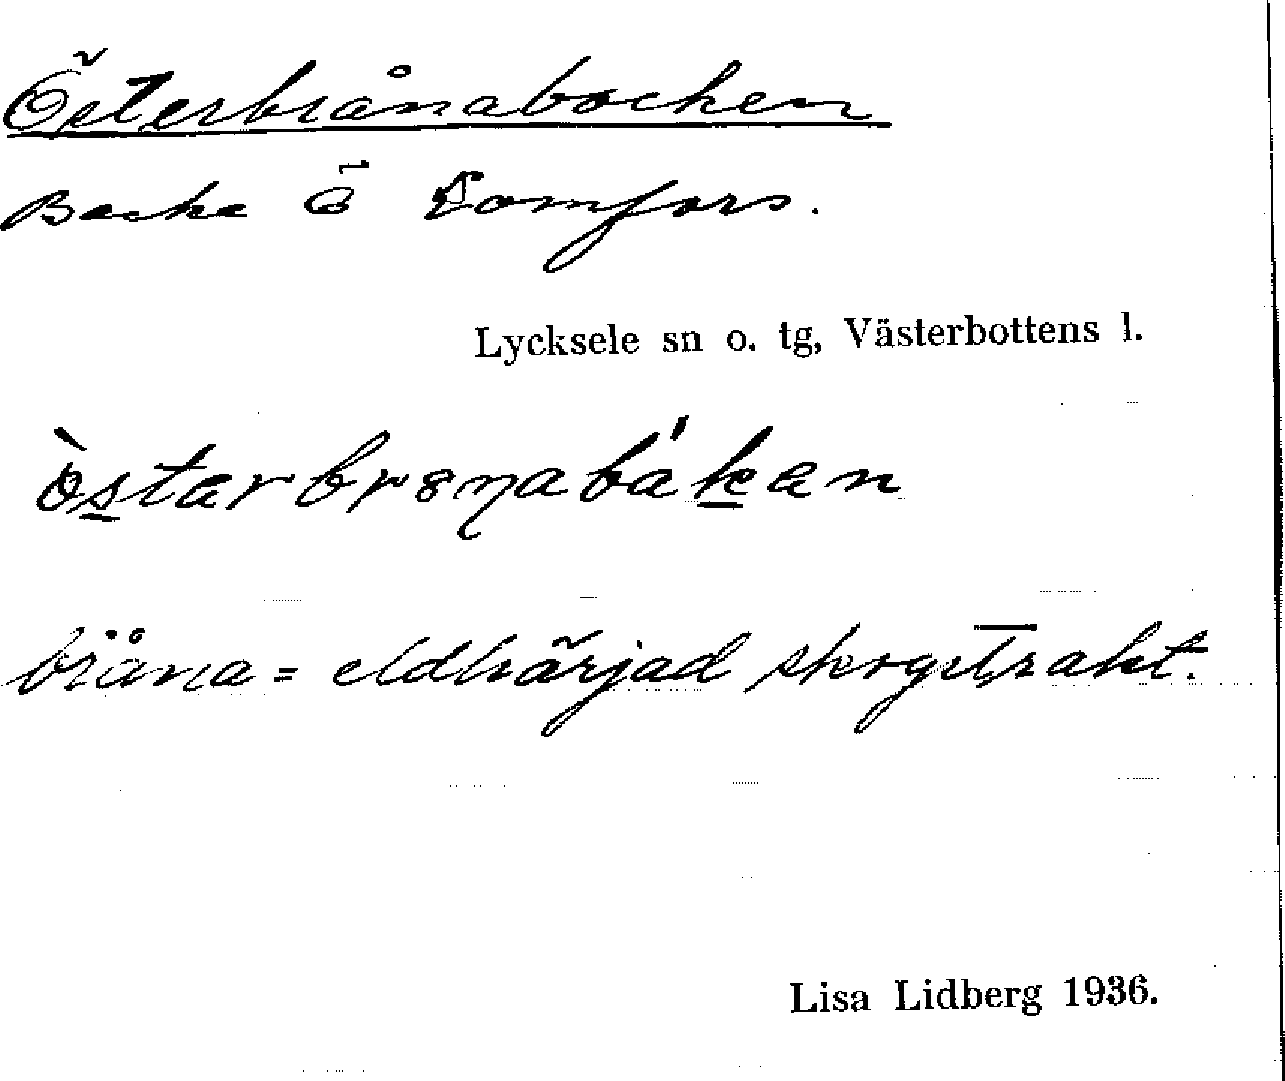 Österbrånabacken
Backe Ö Lomfors.
Lycksele sn o. tg, Västerbottens l.
bråna = eldhärjad skogstrakt.
Lisa Lidberg 1936.